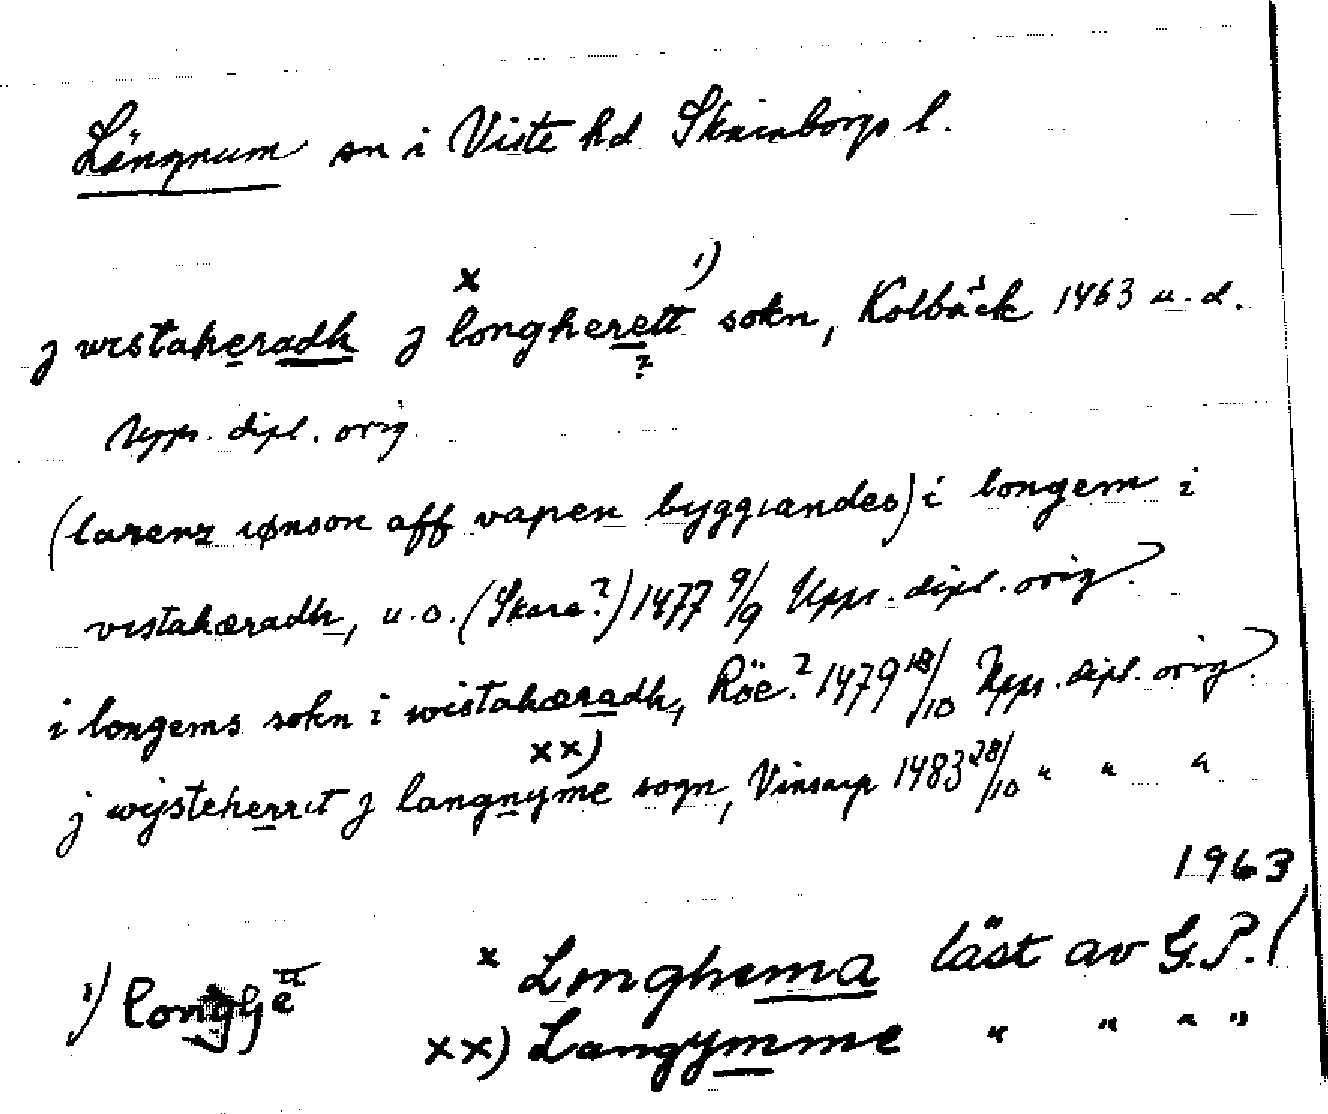 Långnum sn i Viste hd Skaraborgs l.
x 1)
j wistaheradh j longherett sokn, Kolbäck 1463 u. d.
?
Upps. dipl. orig.
(larenz iønson aff vapen byggiandes) i longem i
vistahæradh, u.o. (Skara?) 1477 9/9 Upps. dipl. orig.
i longems sokn i wistahæradh, Röe? 1479 18/10 Upps. dipl. orig.
xx)
j wijsteherrit j langnyme sogn, Vinsarp 1483 28/10 " " "
1963
x Longhema läst av G.P. (
1)
xx) Langymme " " " "